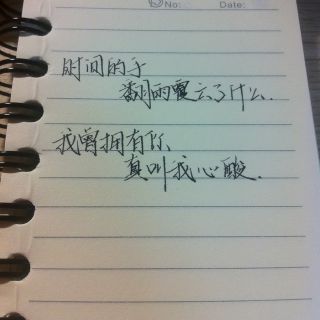 No: Date:
时间的手
翻云覆雨了什么.
我曾拥有你
真叫我心酸.